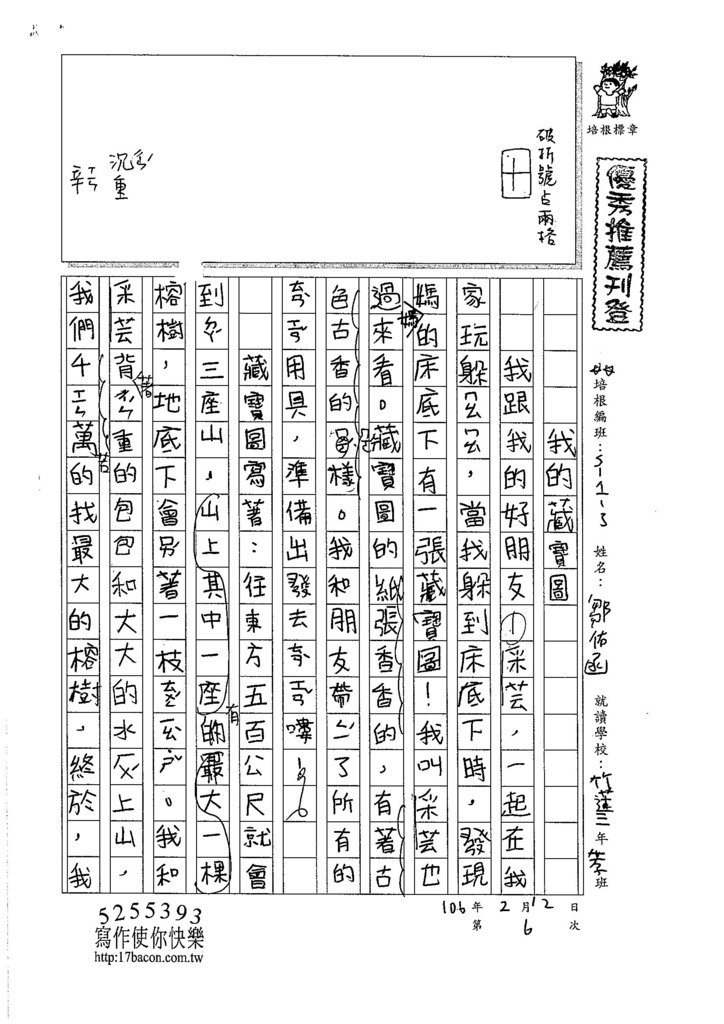 培根標章
優秀推薦刊登
培根編班：S-1-3 姓名：鄒佑函 就讀學校：竹蓮三年孝班
106年2月12日
第6次
破折號占兩格
沉
重
辛
我的藏寶圖
我跟我的好朋友采芸，一起在我
家玩躲ㄇㄠㄇㄠ，當我躲到床底下時，發現
媽媽的床底下有一張藏寶圖！我叫采芸也
過來看。藏寶圖的紙張香香的，有著古
色古香的樣。我和朋友帶ㄕㄤ了所有的
用具，準備出發去嘍
藏寶圖寫著：往東方五百公尺就會
到三座山，山上其中一座有最大一棵
榕樹，地底下會著一枝。我和
采芸背著ㄔㄣ重的包包和大大的水上山，
我們千萬苦的找最大的榕樹，終於，我
5255393
寫作使你快樂
http:17bacon.com.tw